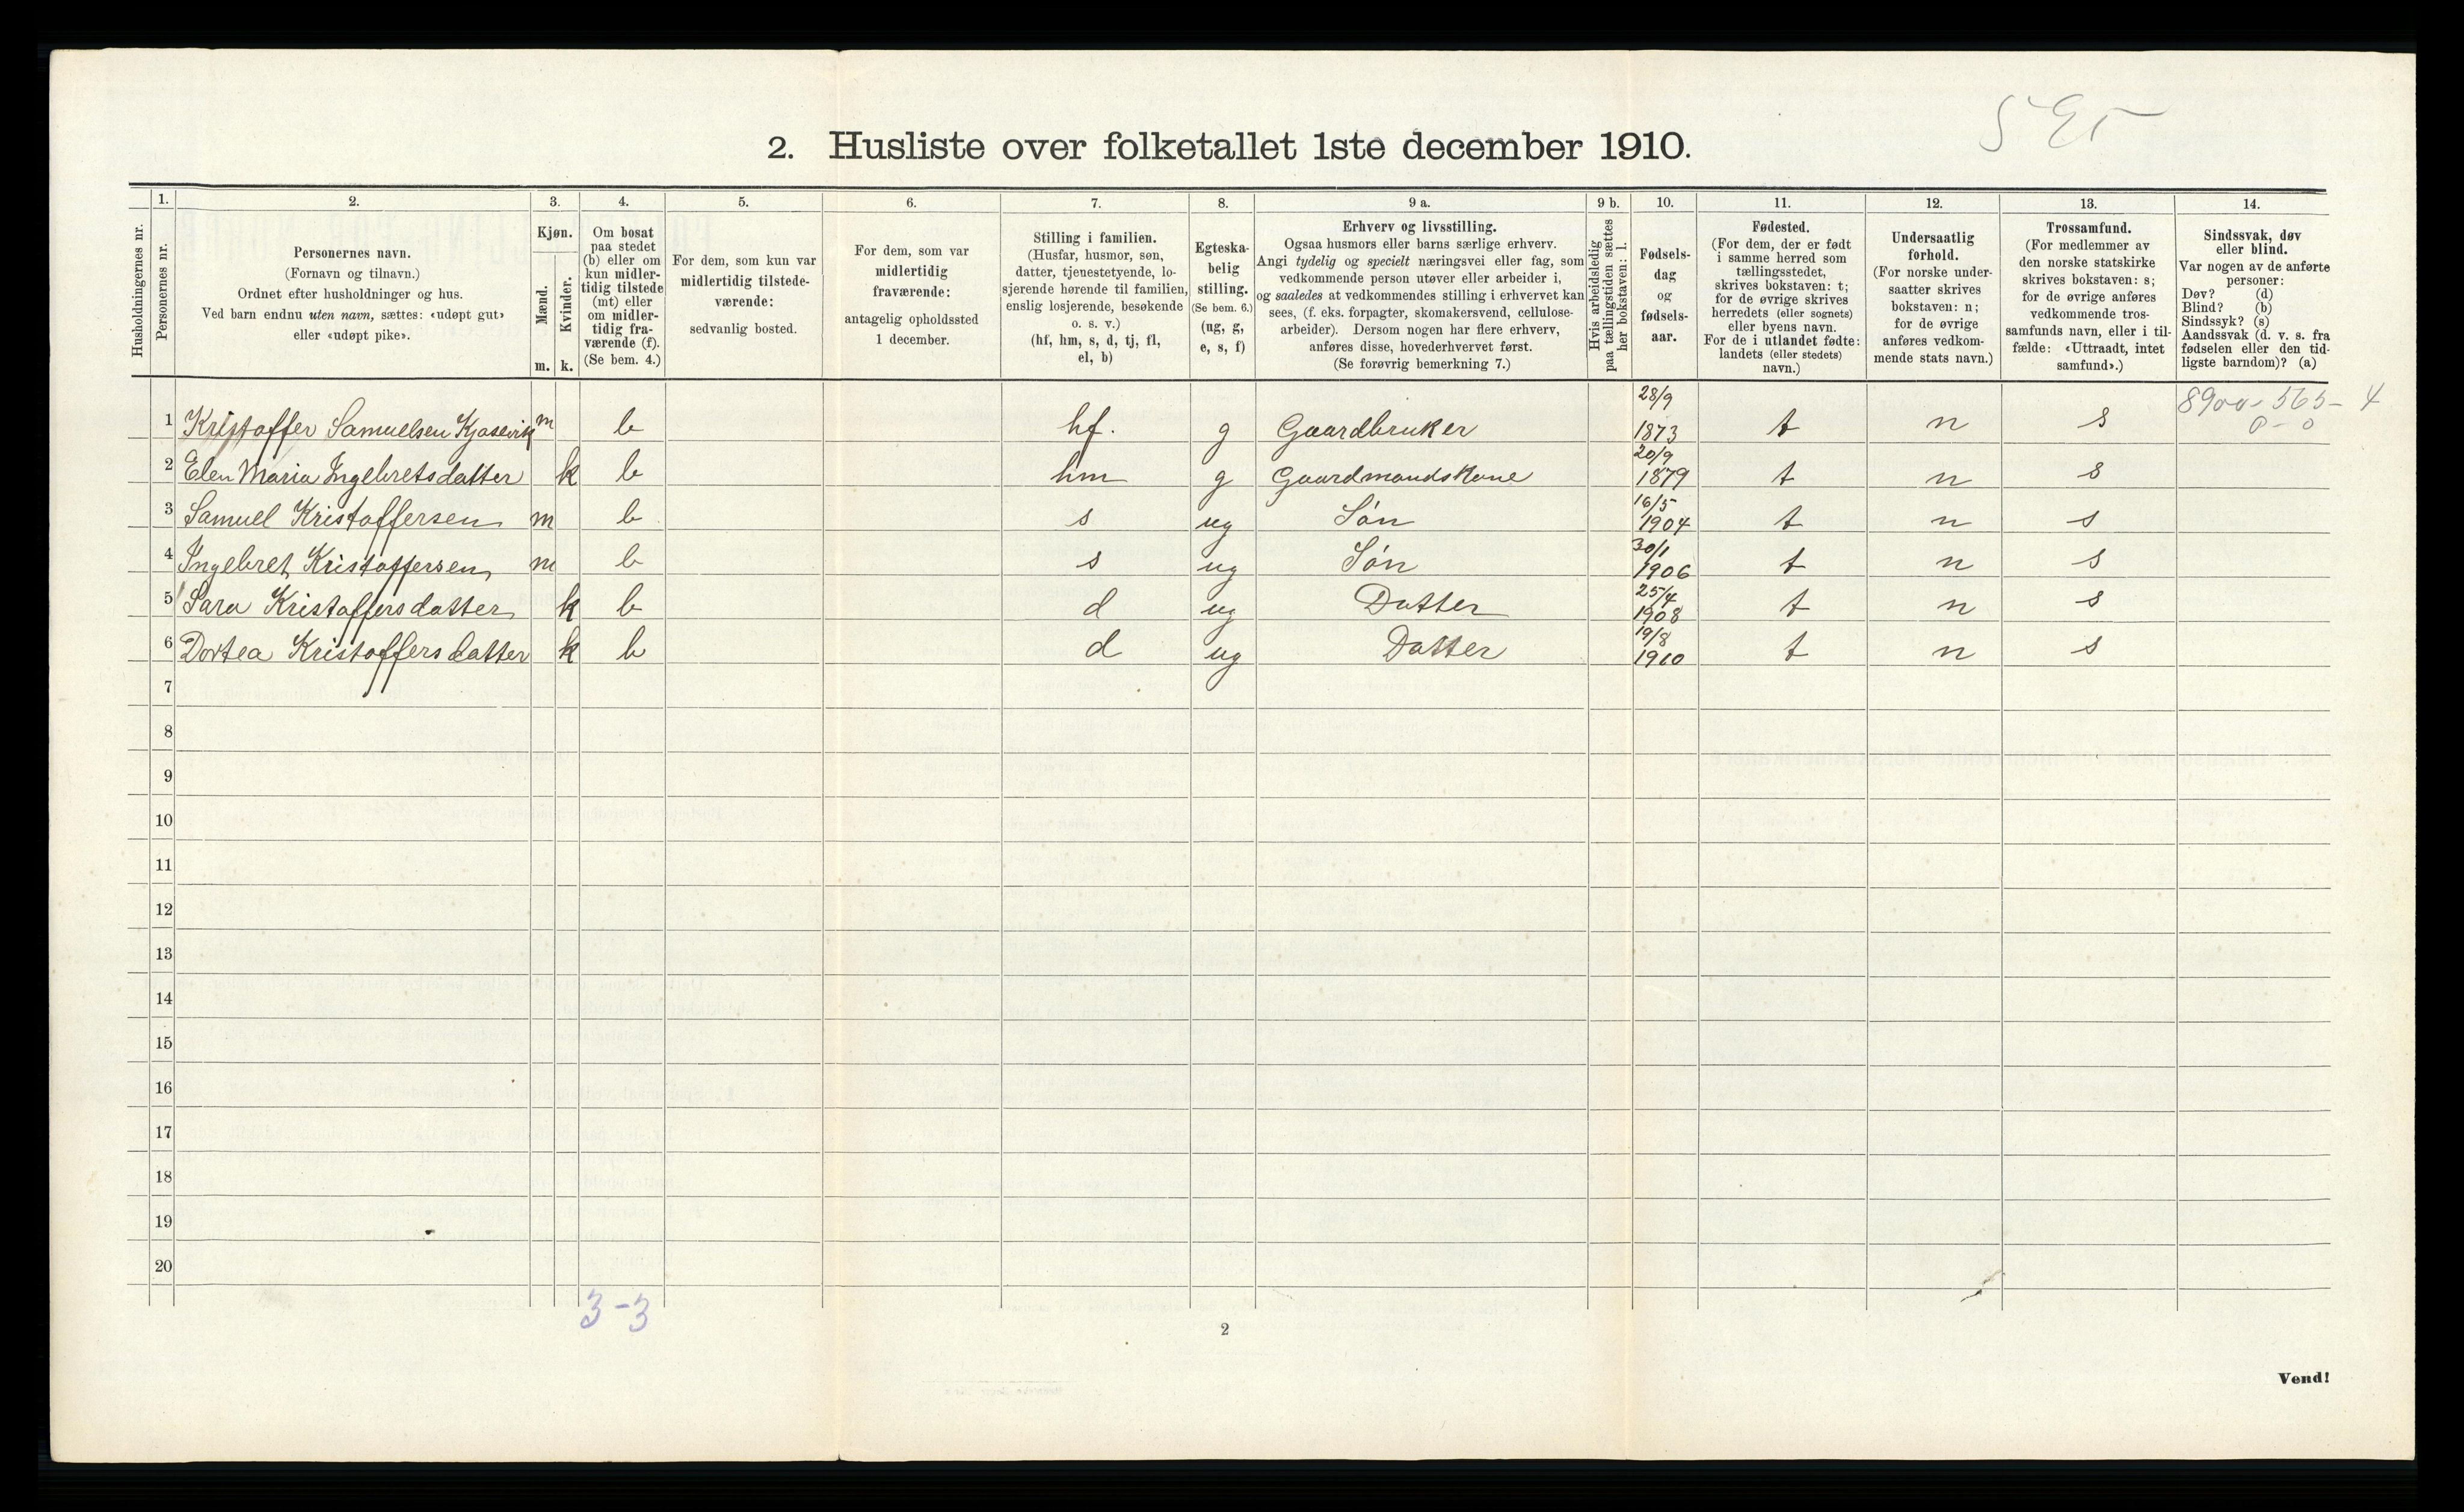 2. Husliste over folketallet 1ste december 1910.
Husholdningernes nr.
1.
Personernes nr.
2.
Personernes navn.
(Fornavn og tilnavn.)
Ordnet efter husholdninger og hus.
Ved barn endnu uten navn, sættes: «udøpt gut»
eller «udøpt pike».
3.
Kjøn.
Mænd.
Kvinder.
m. k.
4.
Om bosat
paa stedet
(b) eller om
kun midler-
tidig tilstede
(mt) eller
om midler-
tidig fra-
værende (f).
(Se bem. 4.)
5.
For dem, som kun var
midlertidig tilstede-
værende:
sedvanlig bosted.
6.
For dem, som var
midlertidig
fraværende:
antagelig opholdssted
1 december.
7.
Stilling i familien.
(Husfar, husmor, søn,
datter, tjenestetyende, lo-
sjerende hørende til familien,
enslig losjerende, besøkende
o. s. v.)
(hf, hm, s, d, tj, fl,
el, b)
8.
Egteska-
belig
stilling.
(Se bem. 6.)
(ug, g,
e, s, f)
9 a.
Erhverv og livsstilling.
Ogsaa husmors eller barns særlige erhverv.
Angi tydelig og specielt næringsvei eller fag, som
vedkommende person utøver eller arbeider i,
og saaledes at vedkommendes stilling i erhvervet kan
sees, (f. eks. forpagter, skomakersvend, cellulose-
arbeider). Dersom nogen har flere erhverv,
anføres disse, hovederhvervet først.
(Se forøvrig bemerkning 7.)
9 b.
Hvis arbeidsledig
paa tællingstiden sættes
her bokstaven: l.
10.
Fødsels-
dag
og
fødsels-
aar.
11.
Fødested.
(For dem, der er født
i samme herred som
tællingsstedet,
skrives bokstaven: t;
for de øvrige skrives
herredets (eller sognets)
eller byens navn.
For de i utlandet fødte:
landets (eller stedets)
navn.)
12.
Undersaatlig
forhold.
(For norske under-
saatter skrives
bokstaven: n;
for de øvrige
anføres vedkom-
mende stats navn.)
13.
Trossamfund.
(For medlemmer av
den norske statskirke
skrives bokstaven: s;
for de øvrige anføres
vedkommende tros-
samfunds navn, eller i til-
fælde: «Uttraadt, intet
samfund».)
14.
Sindssvak, døv
eller blind.
Var nogen av de anførte
personer:
Døv? (d)
Blind? (b)
Sindssyk? (s)
Aandssvak (d. v. s. fra
fødselen eller den tid-
ligste barndom)? (a)
8900-565-4
0-0
1 Kristoffer Samuelsen Kjosevik m b hf. g Gaardbruker 28/9 1873 t n s
2 Elen Maria Ingebretsdatter k b hm g Gaardmandskone 20/9 1879 t n s
3 Samuel Kristoffersen m b s ug Søn 16/5 1904 t n s
4 Ingebret Kristoffersen m b s ug Søn 30/1 1906 t n s
5 Sara Kristoffersdatter k b d ug Datter 25/4 1908 t n s
6 Dortea Kristoffersdatter k b d ug Datter 19/8 1910 t n s
7
8
9
10
11
12
13
14
15
16
17
18
19
20
3-3
2
Vend!